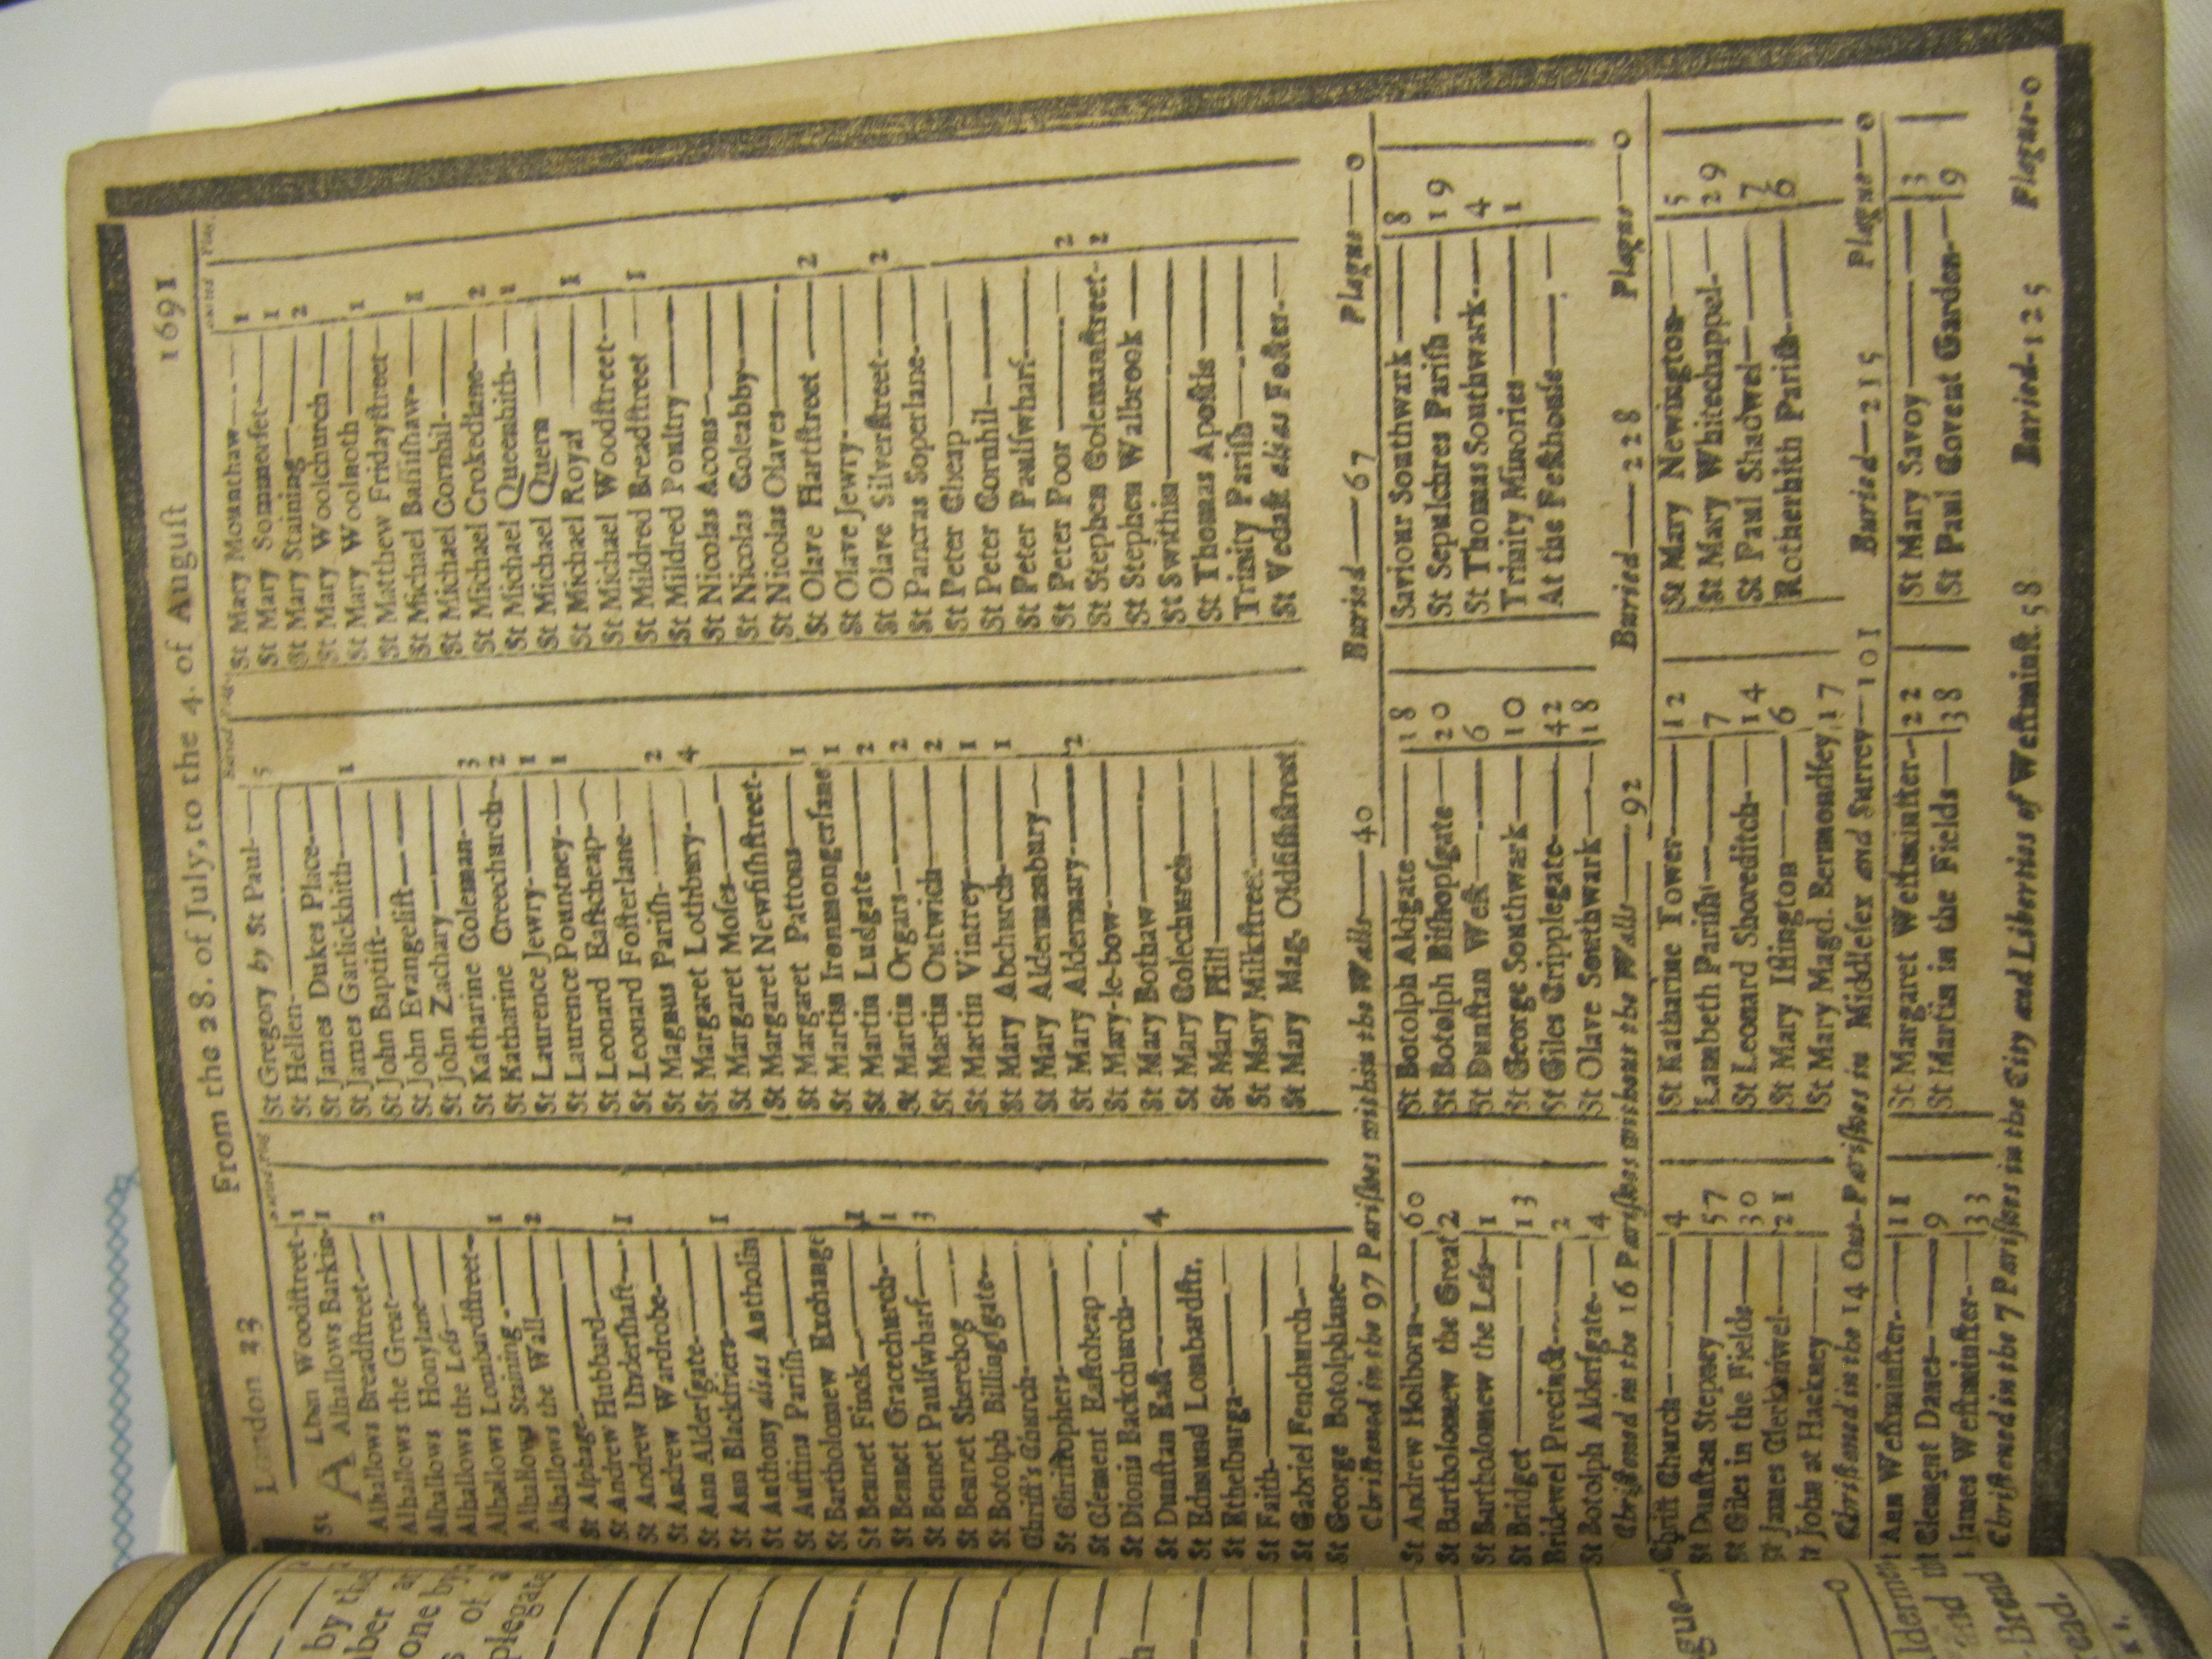 London 23 From the 28. of July, to the 4. of August 1691
St ALban Woodstreet 1
Alhallows Barkin 1
Alhallows Breadstreet
Alhallows the Great 2
Alhallows Honylane
Alhallows the Less
Alhallows Lombardstreet
Alhallows Staining 1
Alhallows the Wall 2
St Alphage
St Andrew Hubbard
St Andrew Undershaft 1
St Andrew Wardrobe
St Ann Aldersgate
St Ann Blackfriers 1
St Anthony alias Antholin
St Austins Parish
St Bartholomew Exchange
St Bennet Finck 1
St Bennet Gracechurch 1
St Bennet Paulswharf 3
St Bennet Sherehog
St Botolph Billingsgate
Christ's Church
St Christophers
St Clement Eastcheap
St Dionis Backchurch
St Dunstan East 4
St Edmund Lombardstr.
St Ethelburga
St Faith
St Gabriel Fenchurch
St George Botolphlane
St Gregory by St Paul 5
St Hellen
St James Dukes Place
St James Garlickhith 1
St John Baptist
St John Evangelist
St John Zachary
St Katharine Coleman 3
St Katharine Creechurch 2
St Laurence Jewry 1
St Laurence Pountney 1
St Leonard Eastcheap
St Leonard Fosterlane
St Magnus Parish 2
St Margaret Lothbury 4
St Margaret Moses
St Margaret Newfishstreet
St Margaret Pattons 1
St Martin Ironmongerlane 1
St Martin Ludgate 2
St Martin Orgars 2
St Martin Outwich 2
St Martin Vintrey 1
St Mary Abchurch 1
St Mary Aldermanbury
St Mary Aldermary 2
St Mary-le-bow
St Mary Bothaw
St Mary Colechurch
St Mary Hill
St Mary Milkstreet
St Mary Mag. Oldfishstreet
St Mary Mounthaw 1
St Mary Sommerset 1
St Mary Staining 2
St Mary Woolchurch
St Mary Woolnoth 1
St Matthew Fridaystreet
St Michael Bassishaw 1
St Michael Cornhil
St Michael Crokedlane 2
St Michael Queenhith 1
St Michael Quern
St Michael Royal 1
St Michael Woodstreet
St Mildred Breadstreet 1
St Mildred Poultry
St Nicolas Acons
St Nicolas Coleabby
St Nicolas Olaves
St Olave Hartstreet 2
St Olave Jewry
St Olave Silverstreet 2
St Pancras Soperlane
St Peter Cheap
St Peter Cornhil
St Peter Paulswharf
St Peter Poor 2
St Stephen Colemanstreet 2
St Stephen Walbrook
St Swithin
St Thomas Apostle
Trinity Parish
St Vedast alias Foster
Christened in the 97 Parishes within the Walls—40 Buried—67 Plague—0
St Andrew Holborn 60
St Bartholomew the Great 2
St Bartholomew the Less 1
St Bridget 13
Bridewel Precinct 2
St Botolph Aldersgate 4
St Botolph Aldgate 18
St Botolph Bishopsgate 20
St Dunstan West 6
St George Southwark 10
St Giles Cripplegate 42
St Olave Southwark 18
Saviour Southwark 8
St Sepulchres Parish 19
St Thomas Southwark 4
Trinity Minories 1
At the Pesthouse
Christened in the 16 Parishes without the Walls—92 Buried—228 Plague—0
Christ Church 4
St Dunstan Stepney 57
St Giles in the Fields 30
St James Clerkenwel 21
St John at Hackney
St Katharine Tower 12
Lambeth Parish 7
St Leonard Shoreditch 14
St Mary Islington 6
St Mary Magd. Bermondsey 17
St Mary Newington 5
St Mary Whitechappel 29
St Paul Shadwel 7
Rotherhith Parish 6
Christened in the 14 Out-Parishes in Middlesex and Surrey—101 Buried—215 Plague—0
Ann Westminster 11
Clement Danes 9
James Westminster 33
St Margaret Westminster 22
St Martin in the Fields 38
St Mary Savoy 3
St Paul Covent Garden 9
Christened in the 7 Parishes in the City and Liberties of Westminst. 58 Buried—125 Plague—0
by the
one by
plegate
Bread